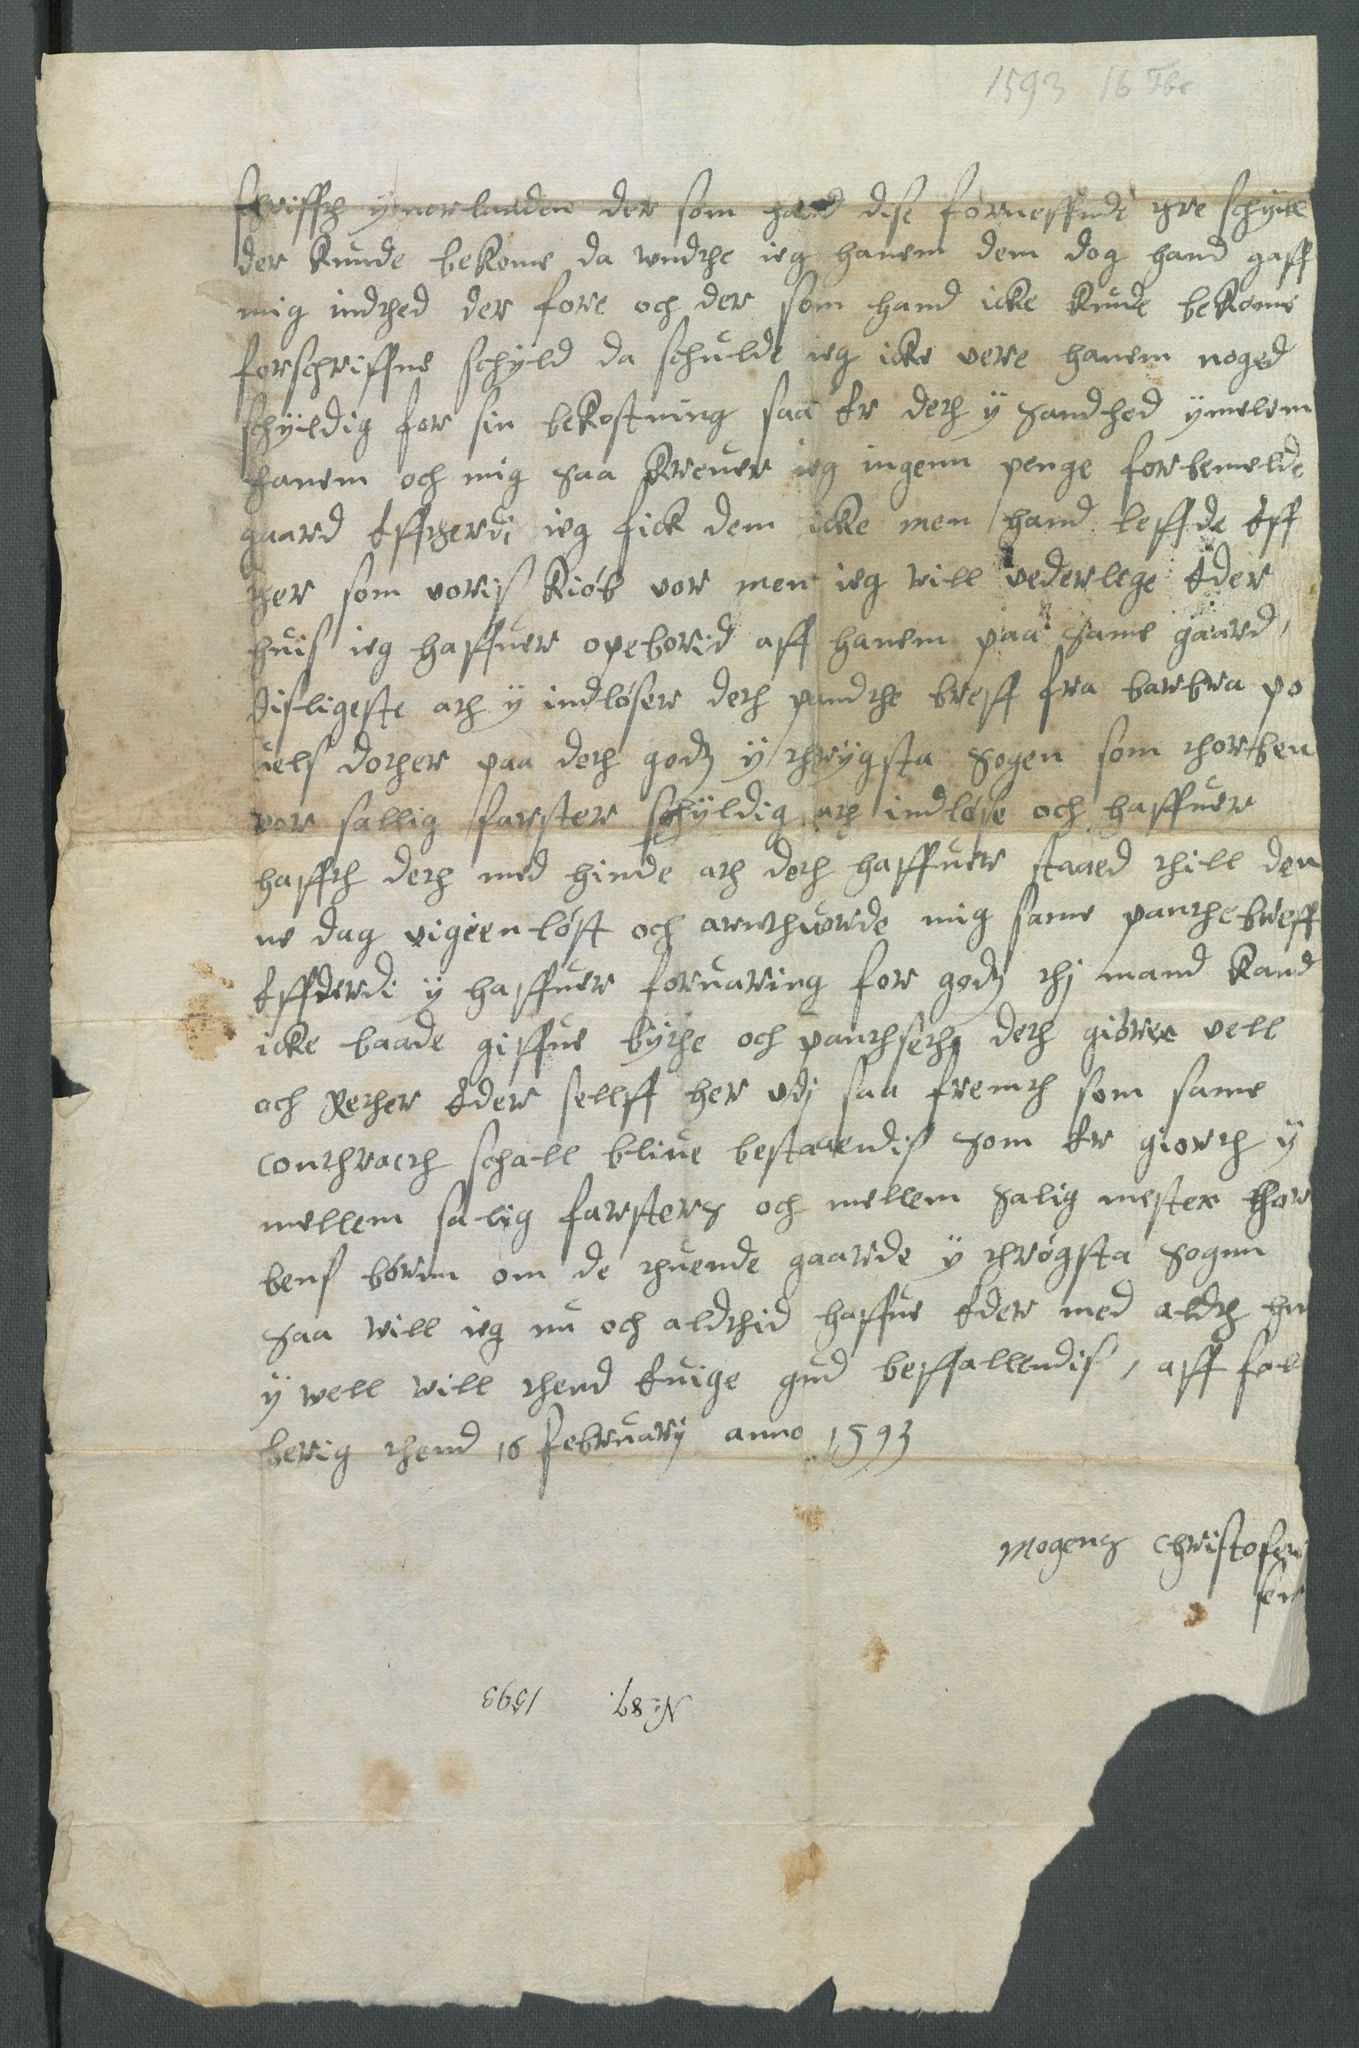 1593 16 Fbr
skrifft y norlanden der som hand dise forneffnde thre schyill
der kunde bekome da wndthe ieg hanem dem dog hand gaff
mig indthed der fore och der som hand icke kunde bekome
forschriffne schyld da schulde ieg icke vere hanem noged
schyldig for sin bekostning saa er deth y sandhed ymelem
hanem och mig saa kreuer ieg ingenn penge for bemelde
gaard efftherdi ieg fick dem icke men hand leffde eff
ther som voris kiøb vor men ieg will vederlege eder
huis ieg haffuer opeborid aff hanem paa same gaard,
disligeste ath y indløser deth pandthe breff fra barbra po
uels dother paa deth godz y thrygsta sogen som thorben
vor sallig farster schyldig ath indløse och haffuer
haffth deth med hinde ath deth haffuer staaed thill den
ne dag vigienløst och anthuorde mig same panthebreff
effderdi y haffuer foruaring for godz thj mand kand
icke baade giffue bythe och panthseth deth giører vell
och rether eder sellff her vdj saa fremth som same
conthracth schall bliue bestaaendis som er giorth y
mellem salig farsters och mellem salig mester thor
bens børnn om de thuende gaarde y thrøgsta sognn
saa will ieg nu och aldthid haffue eder med aldth hu
y well will thend euige gud beffallendis, aff fol
berig thend 16 february anno 1593
Mogens Christofer
sen
N: 87. 1593